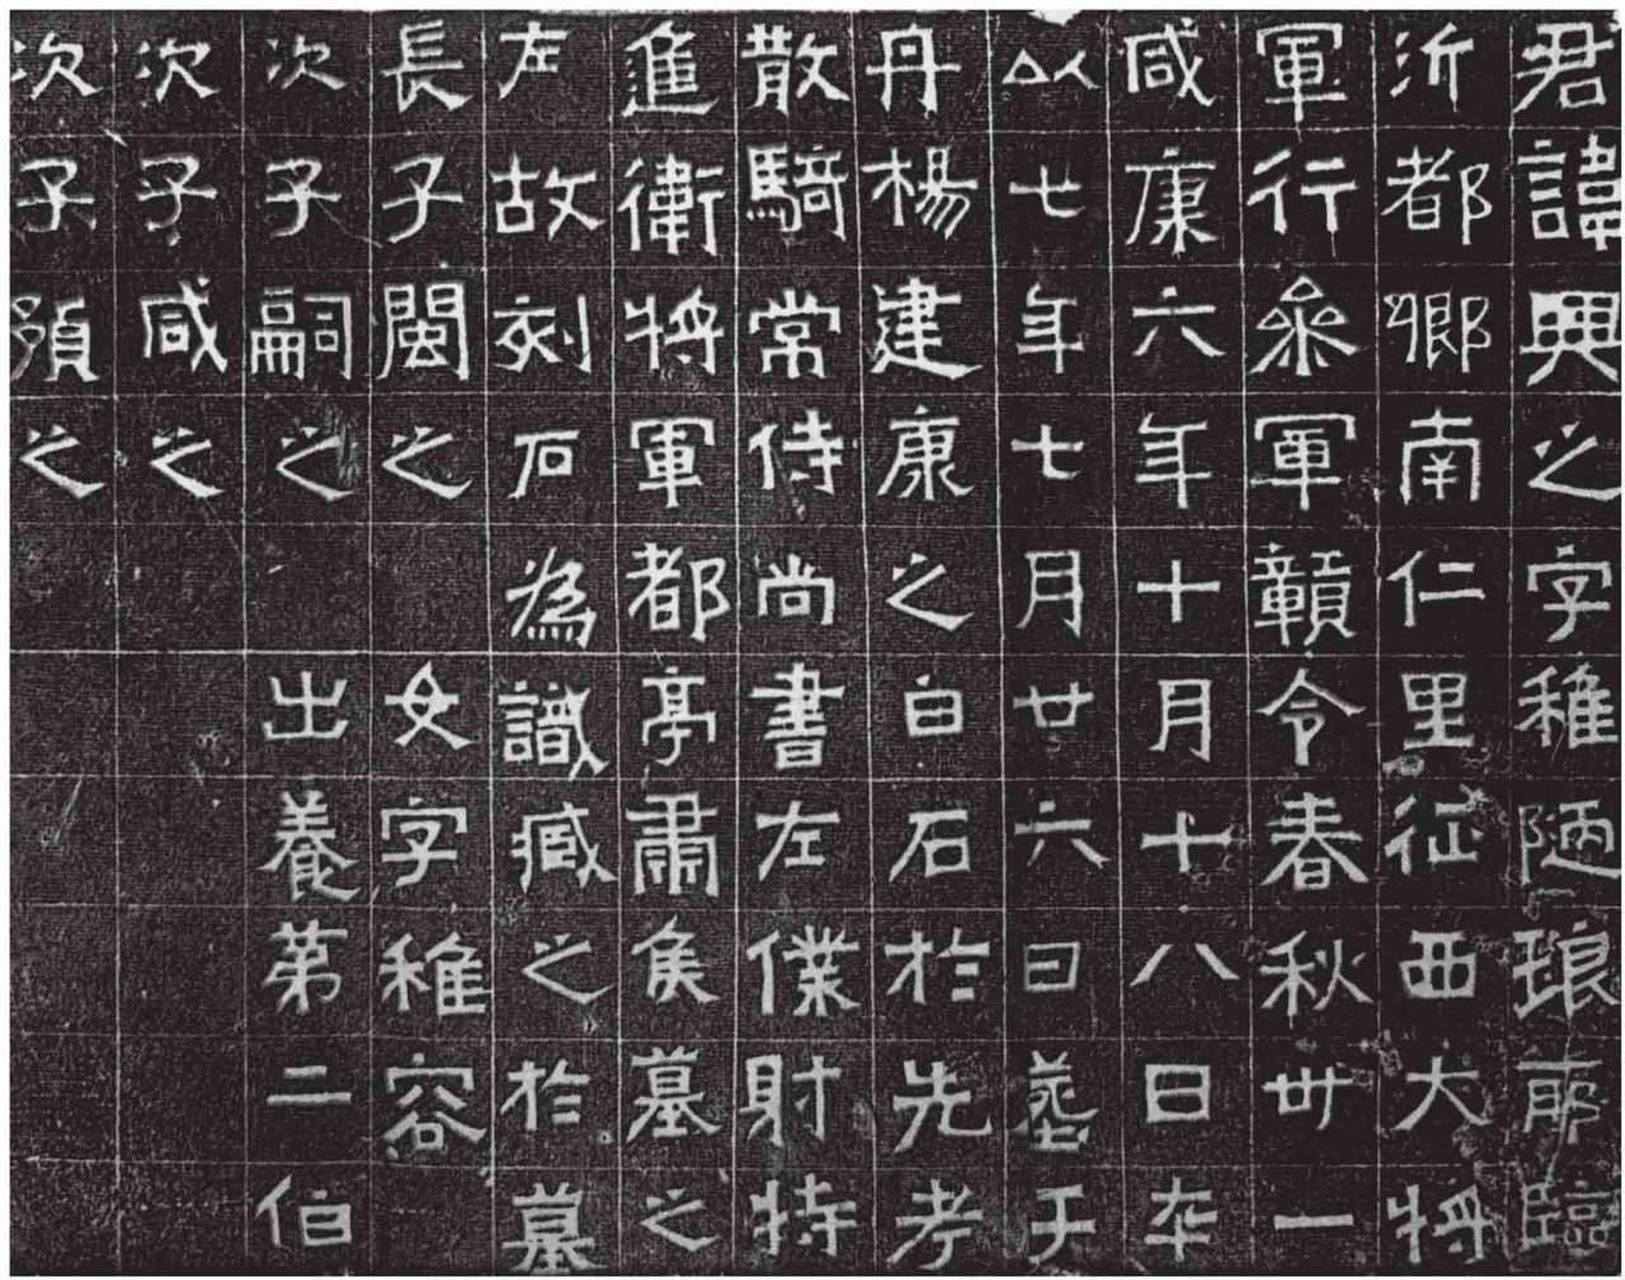 君諱興之字稚陋琅耶臨
沂都鄉南仁里征西大將
軍行參軍贛令春秋卌一
咸康六年十月十八日卒
以七年七月廿六日葬于
丹楊建康之白石於先考
散騎常侍尚書左僕射特
進衛將軍都亭肅侯墓之
左故刻石為識臧之於墓
長子閩之 女字稚容
次子嗣之 出養第二伯
次子咸之
次子預之